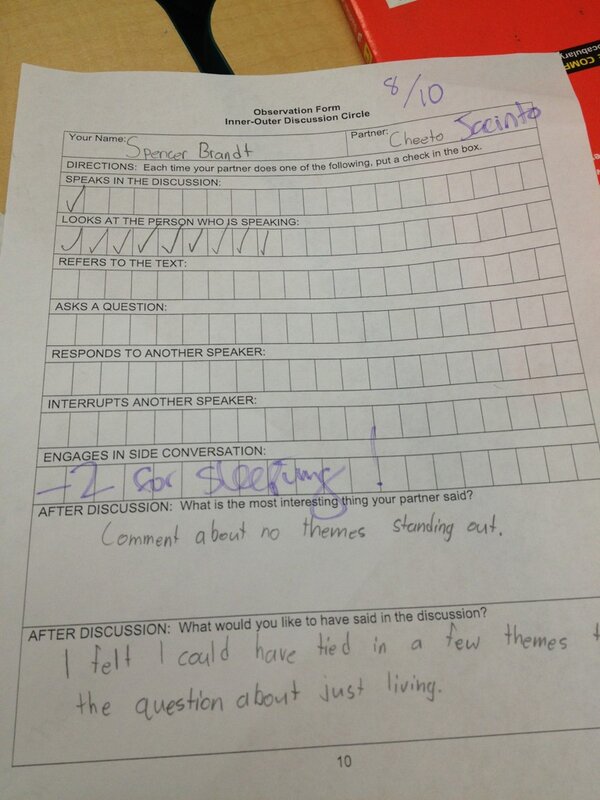 COMP
vocabulary
8/10
Observation Form
Inner-Outer Discussion Circle
Your Name: Spencer Brandt Partner: Cheeto Jacinto
DIRECTIONS: Each time your partner does one of the following, put a check in the box.
SPEAKS IN THE DISCUSSION:
✓
LOOKS AT THE PERSON WHO IS SPEAKING:
✓ ✓ ✓ ✓ ✓ ✓ ✓ ✓ ✓
REFERS TO THE TEXT:
ASKS A QUESTION:
RESPONDS TO ANOTHER SPEAKER:
INTERRUPTS ANOTHER SPEAKER:
ENGAGES IN SIDE CONVERSATION:
-2 for sleeping!
AFTER DISCUSSION: What is the most interesting thing your partner said?
Comment about no themes standing out.
AFTER DISCUSSION: What would you like to have said in the discussion?
I felt I could have tied in a few themes
the question about just living.
10